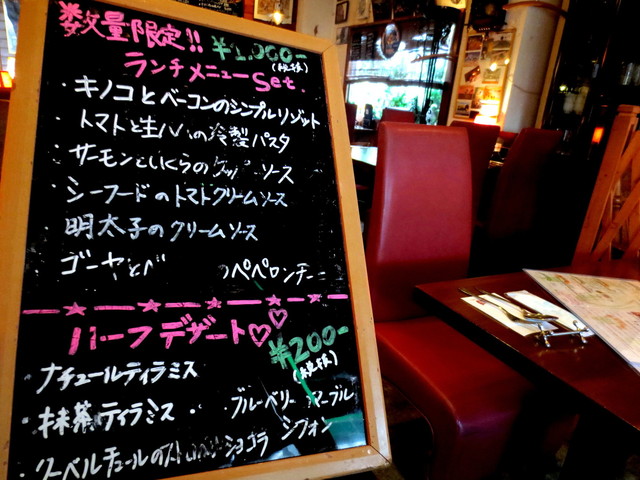 ※数量限定!! ¥1,000-
(税抜)
ランチメニューSet.
・キノコとベーコンのシンプルリゾット
・トマトと生ハムの冷製パスタ
・サーモンといくらの ソース
・シーフードのトマトクリームソース
・明太子のクリームソース
ゴーヤとベ のペペロンチーノ
ハーフデザート♡♡
¥200-
(税抜)
・ナチュールティラミス
・抹茶ティラミス
・ブルーベリーマーブルシフォン
・クーベルチュールの ショコラ